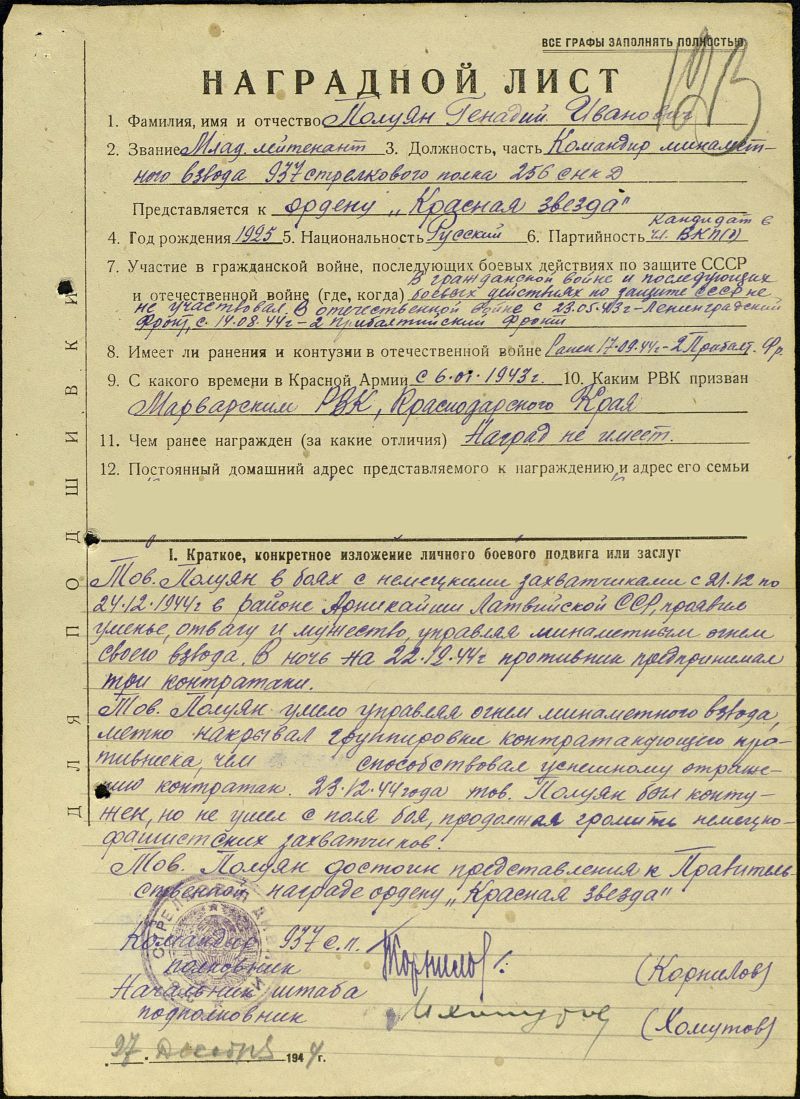 ВСЕ ГРАФЫ ЗАПОЛНЯТЬ ПОЛНОСТЬЮ
123
НАГРАДНОЙ ЛИСТ
1. Фамилия, имя и отчество Полуян Генадий Иванович
2. Звание Млад. лейтенант 3. Должность, часть Командир минамет-
ного взвода 937 стрелкового полка 256 СНКД
Представляется к ордену „Красная звезда"
4. Год рождения 1925 5. Национальность Русский 6. Партийность Кандидат в чл. ВКП(б)
7. Участие в гражданской войне, последующих боевых действиях по защите СССР
и отечественной войне (где, когда) В гражданской войне и последующих
боевых действиях по защите СССР не
не участвовал. В отечественной войне с 23.05.43г-Ленинградский
фронт, с 14.08.44г-2 прибалтийский фронт
8. Имеет ли ранения и контузии в отечественной войне Ранен 17.09.44г-2 Прибалт. Фр.
9. С какого времени в Красной Армии с 6.01.1943г. 10. Каким РВК призван
Марварским РВК, Краснодарского Края
11. Чем ранее награжден (за какие отличия) Наград не имеет.
12. Постоянный домашний адрес представляемого к награждению и адрес его семьи
ДЛЯ ПОДШИВКИ
I. Краткое, конкретное изложение личного боевого подвига или заслуг
Тов. Полуян в боях с немецкими захватчиками с 21.12 по
24.12.1944г в районе Латвийской ССР, проявил
уменье, отвагу и мужество, управляя минаметным огнем
своего взвода. В ночь на 22.12.44г противник предпринимал
три контратаки.
Тов. Полуян умело управляя огнем минаметного взвода,
метко накрывал группировки контратакующего про-
тивника, чем способствовал успешному отраже-
нию контратак. 23.12.44 года тов. Полуян был конту-
жен, но не ушел с поля боя, продолжая громить немецко-
фашистских захватчиков.
Тов. Полуян достоин представления к Правитель-
ственной награде ордену „Красная звезда"
Командир 937 с.п.
полковник Корнилов (Корнилов)
Начальник штаба
подполковник (Хомутов)
27 Декабря 1944 г.